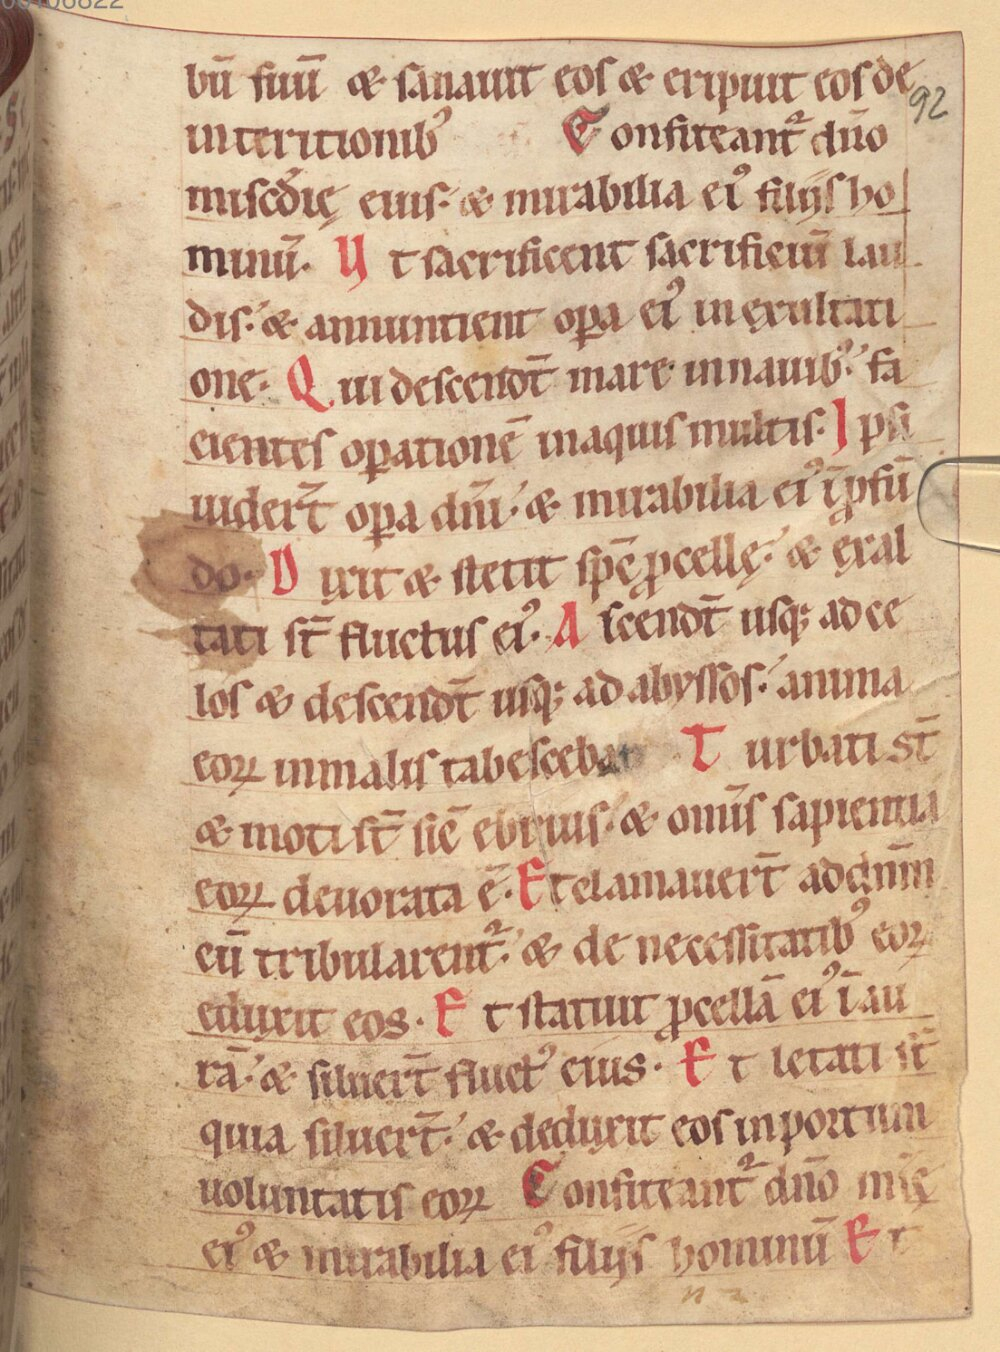 00106822
92
bū ſuū & ſanauit eoſ & eripuit eoſ de
interitionibꝰ Confiteant᷑ dn̄o
miſc̄dię eiuſ· & mirabilia eiꝰ filijſ ho
minū· Ut ſacrificent ſacrificiū lau
diſ·' & annuntient oꝑa eiꝰ in exultati
one· Qui deſcendt̄ mare in nauibꝰ·' fa
cienteſ oꝑationē in aquiſ multiſ· Ipſi
uidert̄ oꝑa dn̄i·' & mirabilia eiꝰ ī ꝓfū
do· Dixit & ſtetit ſpē ꝓcellę·' & exal
tati ſt̄ fluctus eiꝰ· Aſcendt̄ uſqꝫ ad ce
loſ & deſcendt̄ uſqꝫ ad abyſſoſ·' anima
eoꝝ in maliſ tabeſcebat Turbati st̄
& moti ſt̄ ſic̄ ebriuſ·' & omīſ sapientia
eoꝝ deuorata ē· Et clamauert̄ ad dn̄m
cū tribularent᷑·' & de neceſſitatibꝰ eoꝝ
eduxit eos· Et ſtatuit ꝓcellā eiꝰ ī au
rā·' & ſiluert̄ fluctꝰ eius· Et letati ſt̄
quia ſiluert̄·' & deduxit eoſ in portum
uoluntatis eoꝝ Confiteant᷑ dn̄o mīę
eiꝰ & mirabilia eiꝰ filijſ hominū Et